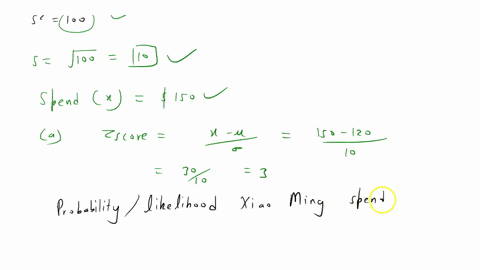 s² = 100 ✓
S = √100 = 10 ✓
Spend (x) = $150 ✓
(a) Zscore = x - μ / σ = 150 - 120 / 10
= 30/10 = 3
Probability / likelihood Xiao Ming spend